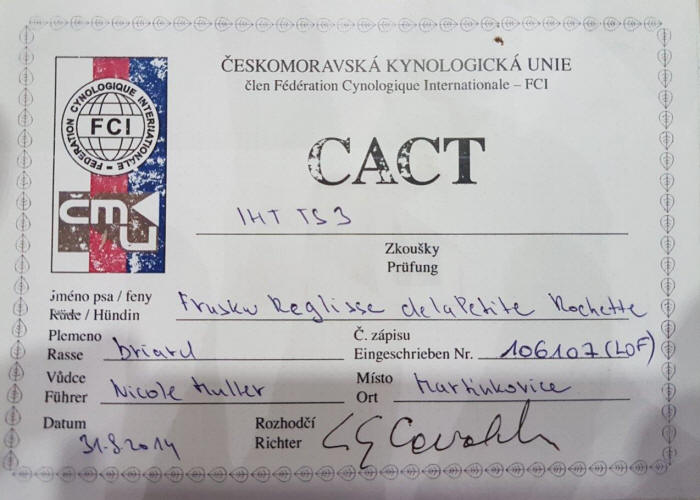 ČESKOMORAVSKÁ KYNOLOGICKÁ UNIE
člen Fédération Cynologique Internationale – FCI
FEDERATION CYNOLOGIQUE INTERNATIONALE
FCI
čmku
CACT
IHT TS3
Zkoušky
Prüfung
Jméno psa / feny
Rüde / Hündin Fruskw Reglisse de la Petite Rochette
Plemeno
Rasse briard
Č. zápisu
Eingeschrieben Nr. 106107 (LOF)
Vůdce
Führer Nicole Muller
Místo
Ort Martinkovice
Datum 31.8.2014
Rozhodčí
Richter